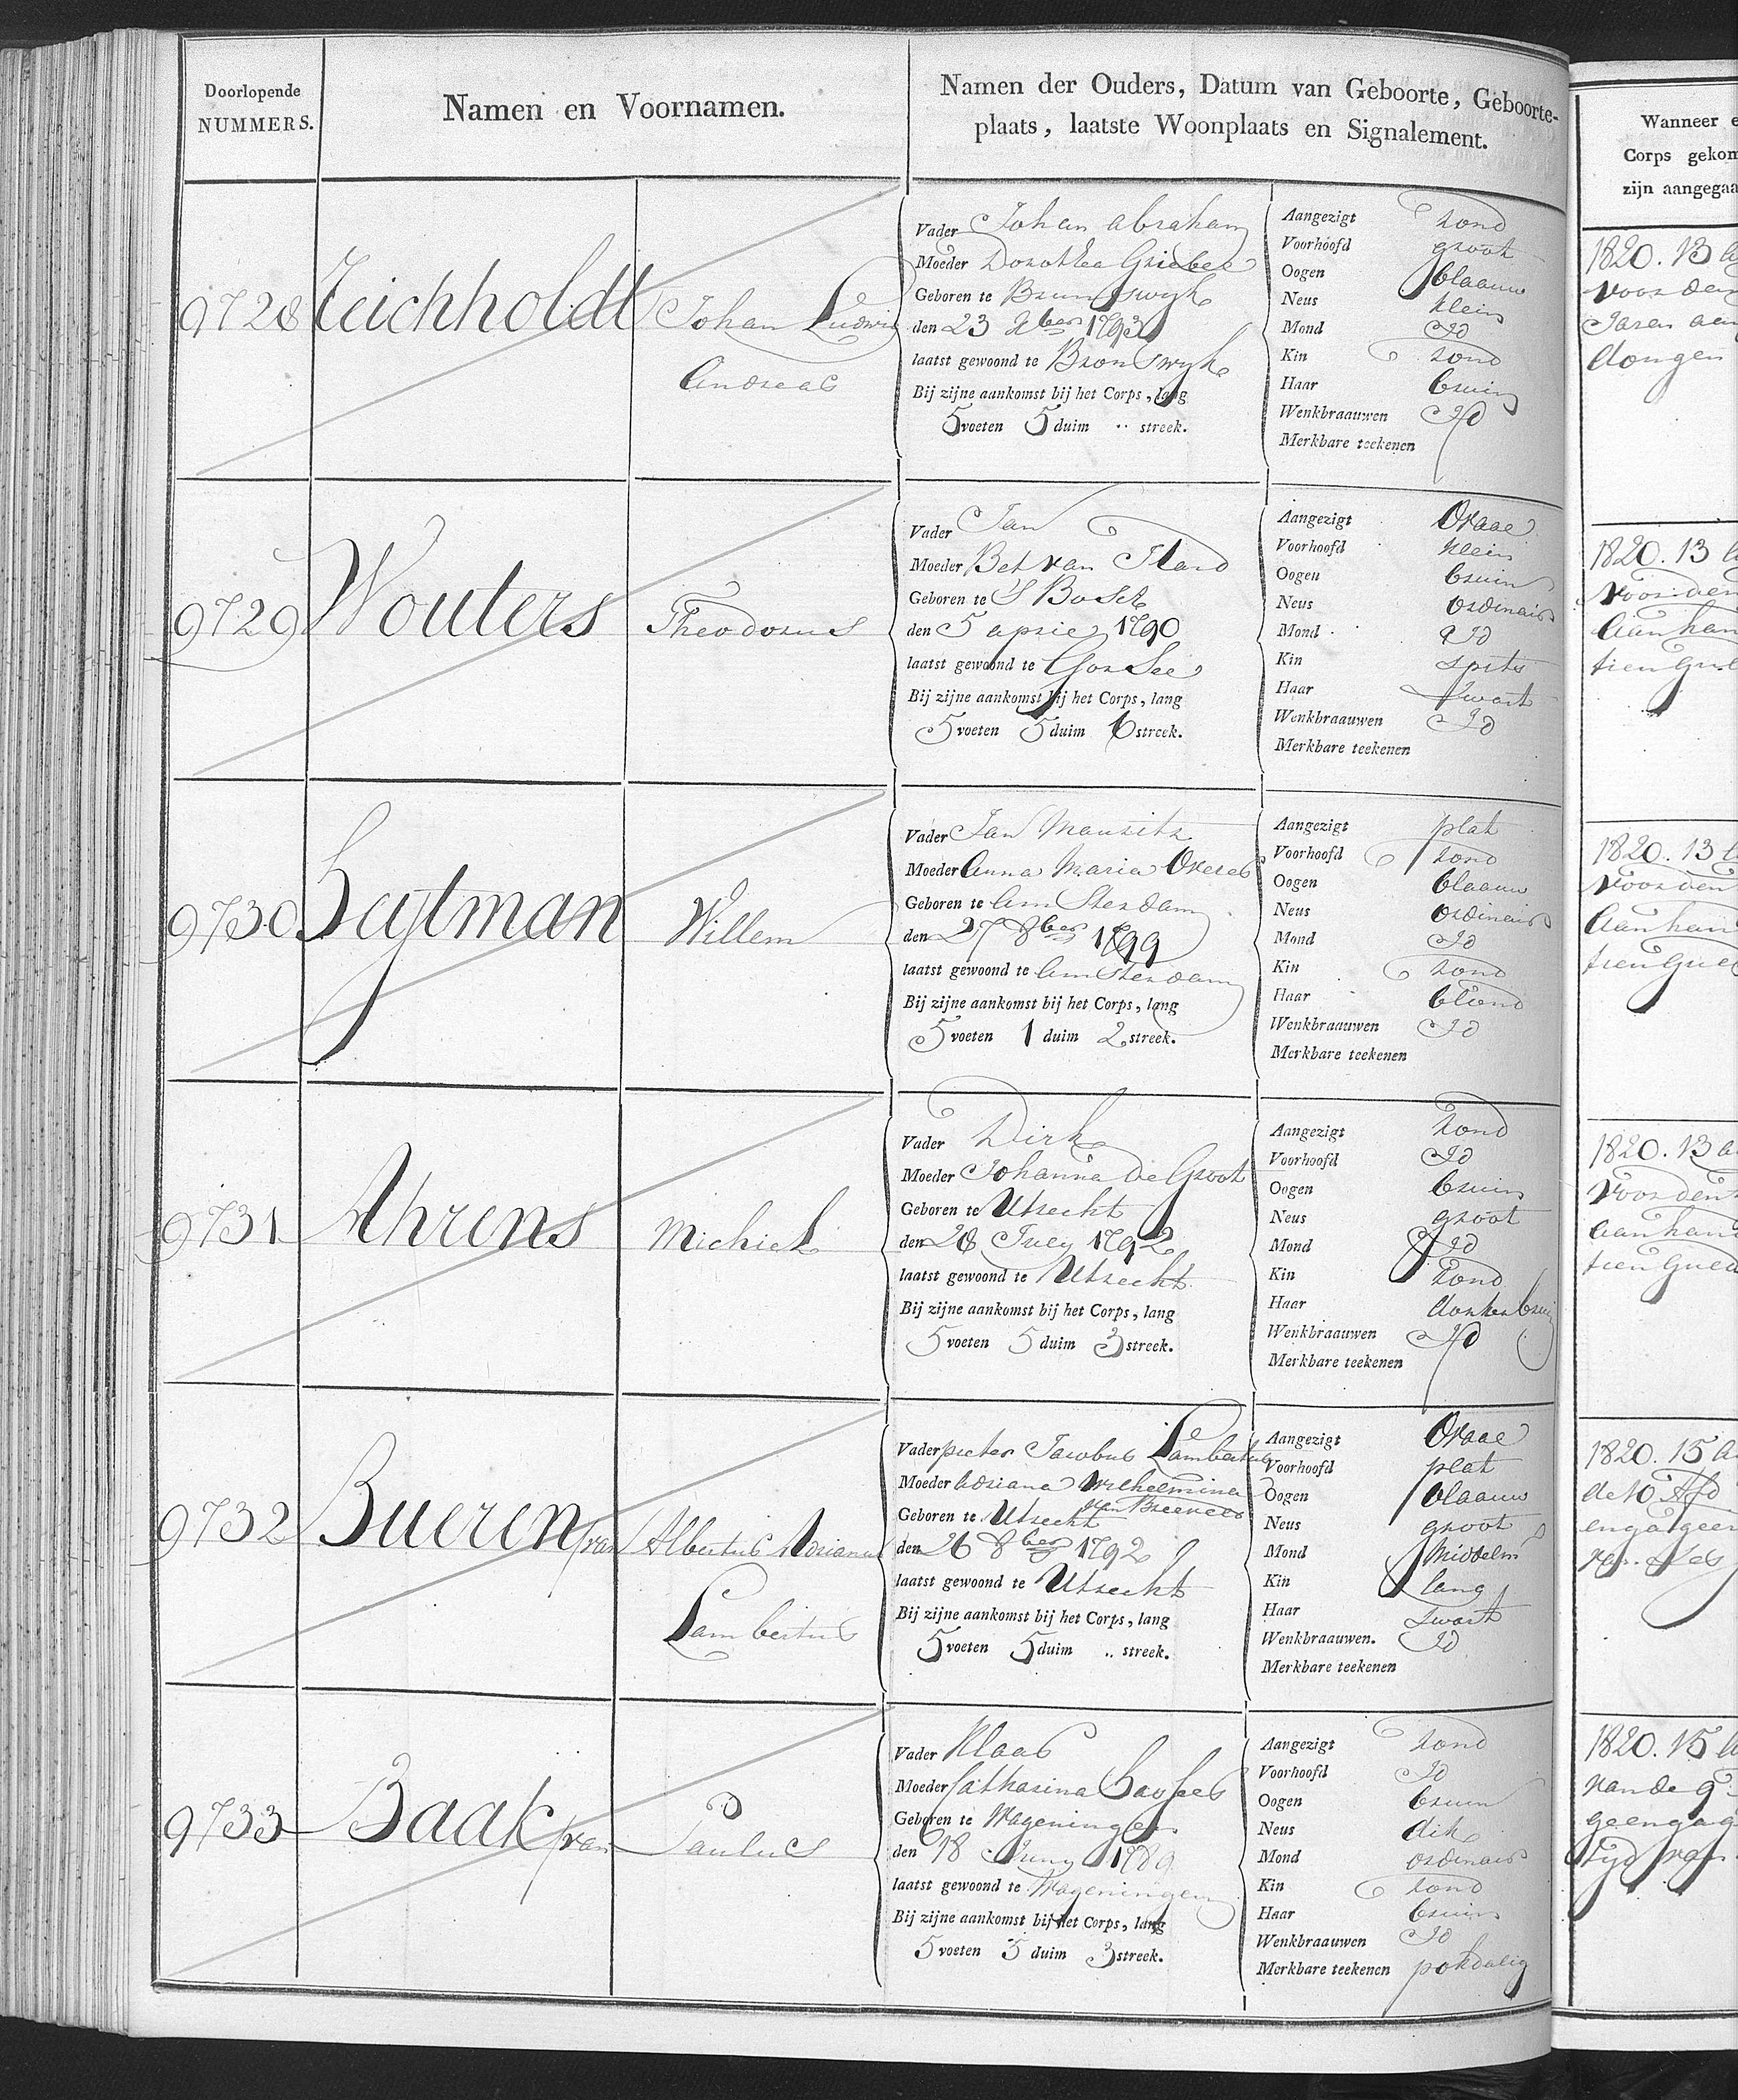 Doorlopende
NUMMERS.
Namen en Voornamen.
Namen der Ouders, Datum van Geboorte, Geboorte-
plaats, laatste Woonplaats en Signalement.
Wanneer e
Corps gekom
zijn aangegaa
9728 Teichholdt Johan Ludwig
Andreas
Vader Johan Abraham
Moeder Dorothea Griebel
Geboren te Brunswyk
den 23 Xber 1793
laatst gewoond te Bronswyk
Bij zijne aankomst bij het Corps, lang
5 voeten 5 duim .. streek.
Aangezigt rond
Voorhoofd groot
Oogen blaauw
Neus klein
Mond Id
Kin rond
Haar bruin
Wenkbraauwen Id
Merkbare teekenen
1820. 13
voor den
Jaren
dongen
9729 Wouters Theodorus
Vader Jan
Moeder Bet van
Geboren te S Bosch
den 5 april 1790
laatst gewoond te
Bij zijne aankomst bij het Corps, lang
5 voeten 5 duim 6 streek.
Aangezigt Ovaal
Voorhoofd klein
Oogen bruin
Neus ordinair
Mond Id
Kin spits
Haar swart
Wenkbraauwen Id
Merkbare teekenen
1820. 13
voor den
Aan han
tien Gul
9730 Sajtman Willem
Vader Jan Mauritz
Moeder Anna Maria
Geboren te Amsterdam
den 27 8ber 1799
laatst gewoond te Amsterdam
Bij zijne aankomst bij het Corps, lang
5 voeten 1 duim 2 streek.
Aangezigt plat
Voorhoofd rond
Oogen blaauw
Neus ordinair
Mond Id
Kin rond
Haar blond
Wenkbraauwen Id
Merkbare teekenen
1820. 13
voor den
Aan han
tien Gul
9731 Ahrens Michiel
Vader Dirk
Moeder Johanna de Groot
Geboren te Utrecht
den 28 July 1792
laatst gewoond te Utrecht
Bij zijne aankomst bij het Corps, lang
5 voeten 5 duim 3 streek.
Aangezigt rond
Voorhoofd Id
Oogen bruin
Neus groot
Mond Id
Kin rond
Haar donker bruin
Wenkbraauwen Id
Merkbare teekenen
1820. 13 a
voor den
Aan han
tien Guld
9732 Bueren van Albertus Adrianus
Lambertus
Vader pieter Jacobus Lambertus
Moeder Adriana Wilhelmina
Geboren te Utrecht
den 26 8ber 1792
laatst gewoond te Utrecht
Bij zijne aankomst bij het Corps, lang
5 voeten 5 duim .. streek.
Aangezigt Ovaal
Voorhoofd plat
Oogen blaauw
Neus groot
Mond Middelm
Kin lang
Haar swart
Wenkbraauwen. Id
Merkbare teekenen
1820. 15 a
de 10 Afd
9733 Baak van Paulus
Vader Klaas
Moeder Catharina
Geboren te Wageningen
den 18 Juny 1789
laatst gewoond te Wageningen
Bij zijne aankomst bij het Corps, lang
5 voeten 5 duim 3 streek.
Aangezigt rond
Voorhoofd Id
Oogen bruin
Neus dik
Mond ordinair
Kin rond
Haar bruin
Wenkbraauwen Id
Merkbare teekenen pokdalig
1820. 15
van de 9
geengag
tyd van